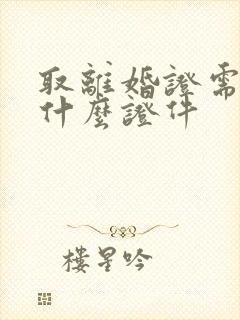 取離婚證需
什麼證件
樓星吟